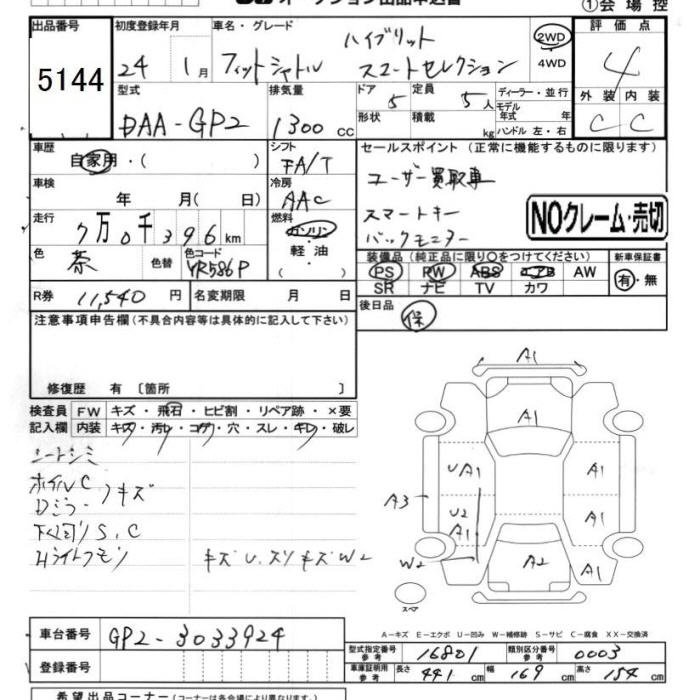 オークション出品申込書
①会場控
出品番号 初度登録年月 車名・グレード 評価点
5144 24 1月 フィットシャトル ハイブリット スマートセレクション 2WD 4WD 4
型式 排気量 ドア 5 定員 5人 ディーラー・並行 外装 内装
DAA-GP2 1300cc 形状 積載 kg モデル年式 年 ハンドル 左・右 C C
車歴 自家用・( ) シフト FA/T セールスポイント(正常に機能するものに限ります)
車検 年 月( 日) 冷房 AAC ユーザー買取車
走行 7万0千396km 燃料 ガソリン 軽油 ・( ) スマートキー
バックモニター
NOクレーム・売切
色 茶 色替 色コード YR586P 装備品(純正品に限り○をつけてください) 新車保証書
PS PW ABS エアB AW 有・無
SR ナビ TV カワ
R券 11,540円 名変期限 月 日 後日品 保
注意事項申告欄(不具合内容等は具体的に記入して下さい)
修復歴 有〔箇所 〕
検査員 FW キズ・飛石・ヒビ割・リペア跡・×要
記入欄 内装 キズ・汚レ・コゲ・穴・スレ・キレ・破レ
シートシミ
ホイルC
Dミラーキズ
下廻りS.C
Hライトクモリ
キズU.スリキズW2
A1
A1
UA1 A1
A3
U2 A1 A1
W2 A2 A1
スペア
A-キズ E-エクボ U-凹み W-補修跡 S-サビ C-腐食 XX-交換済
車台番号 GP2-3033924
型式指定番号 参考 16801 類別区分番号 参考 0003
登録番号
車庫証明用 参考 長さ 441cm 幅 169cm 高さ 154cm
希望出品コーナー